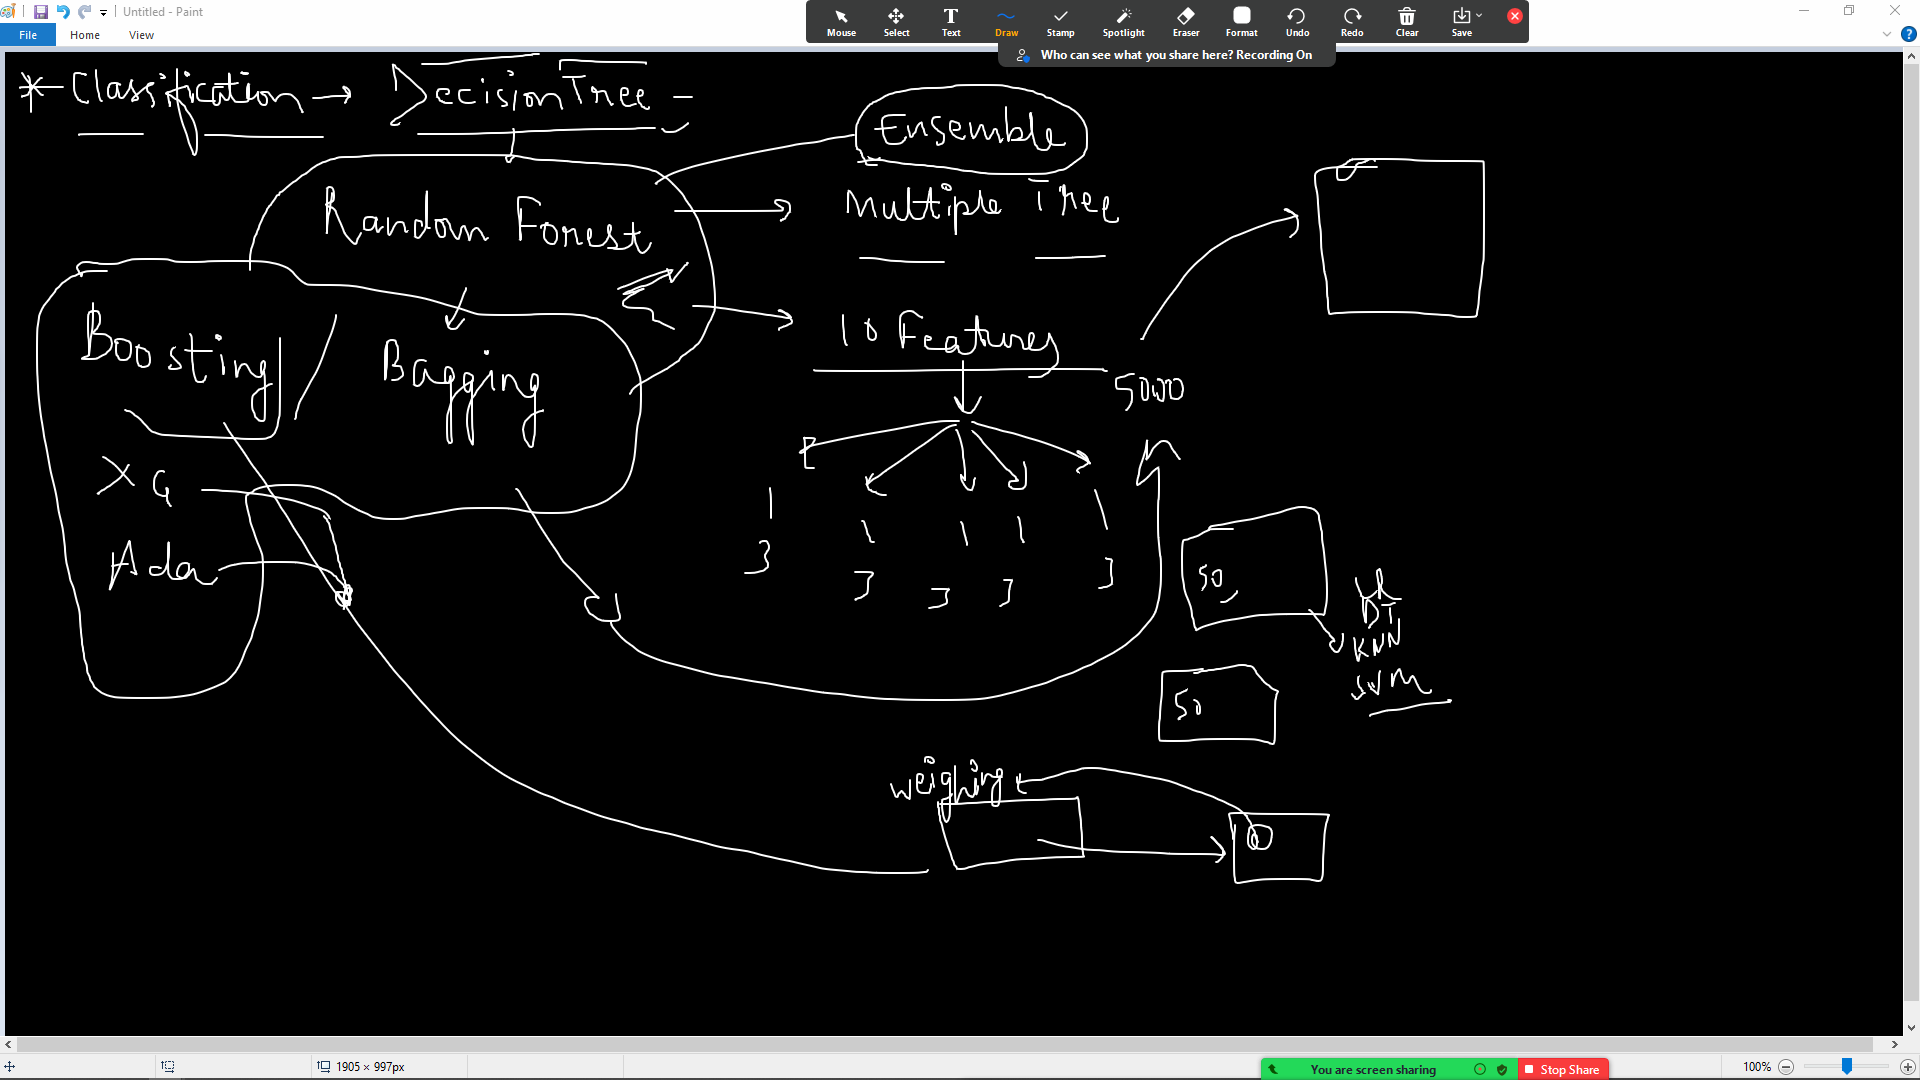 Untitled - Paint
File Home View
Mouse Select Text Draw Stamp Spotlight Eraser Format Undo Redo Clear Save
Who can see what you share here? Recording On
Classification → Decision Tree -
Ensemble
Random Forest → Multiple Tree
Boosting / Bagging
10 Features
5000
XG
Ada
3 3 3 3 3
50
DT
KNN
SVM
50
weighing
1905 × 997px
You are screen sharing
Stop Share
100%